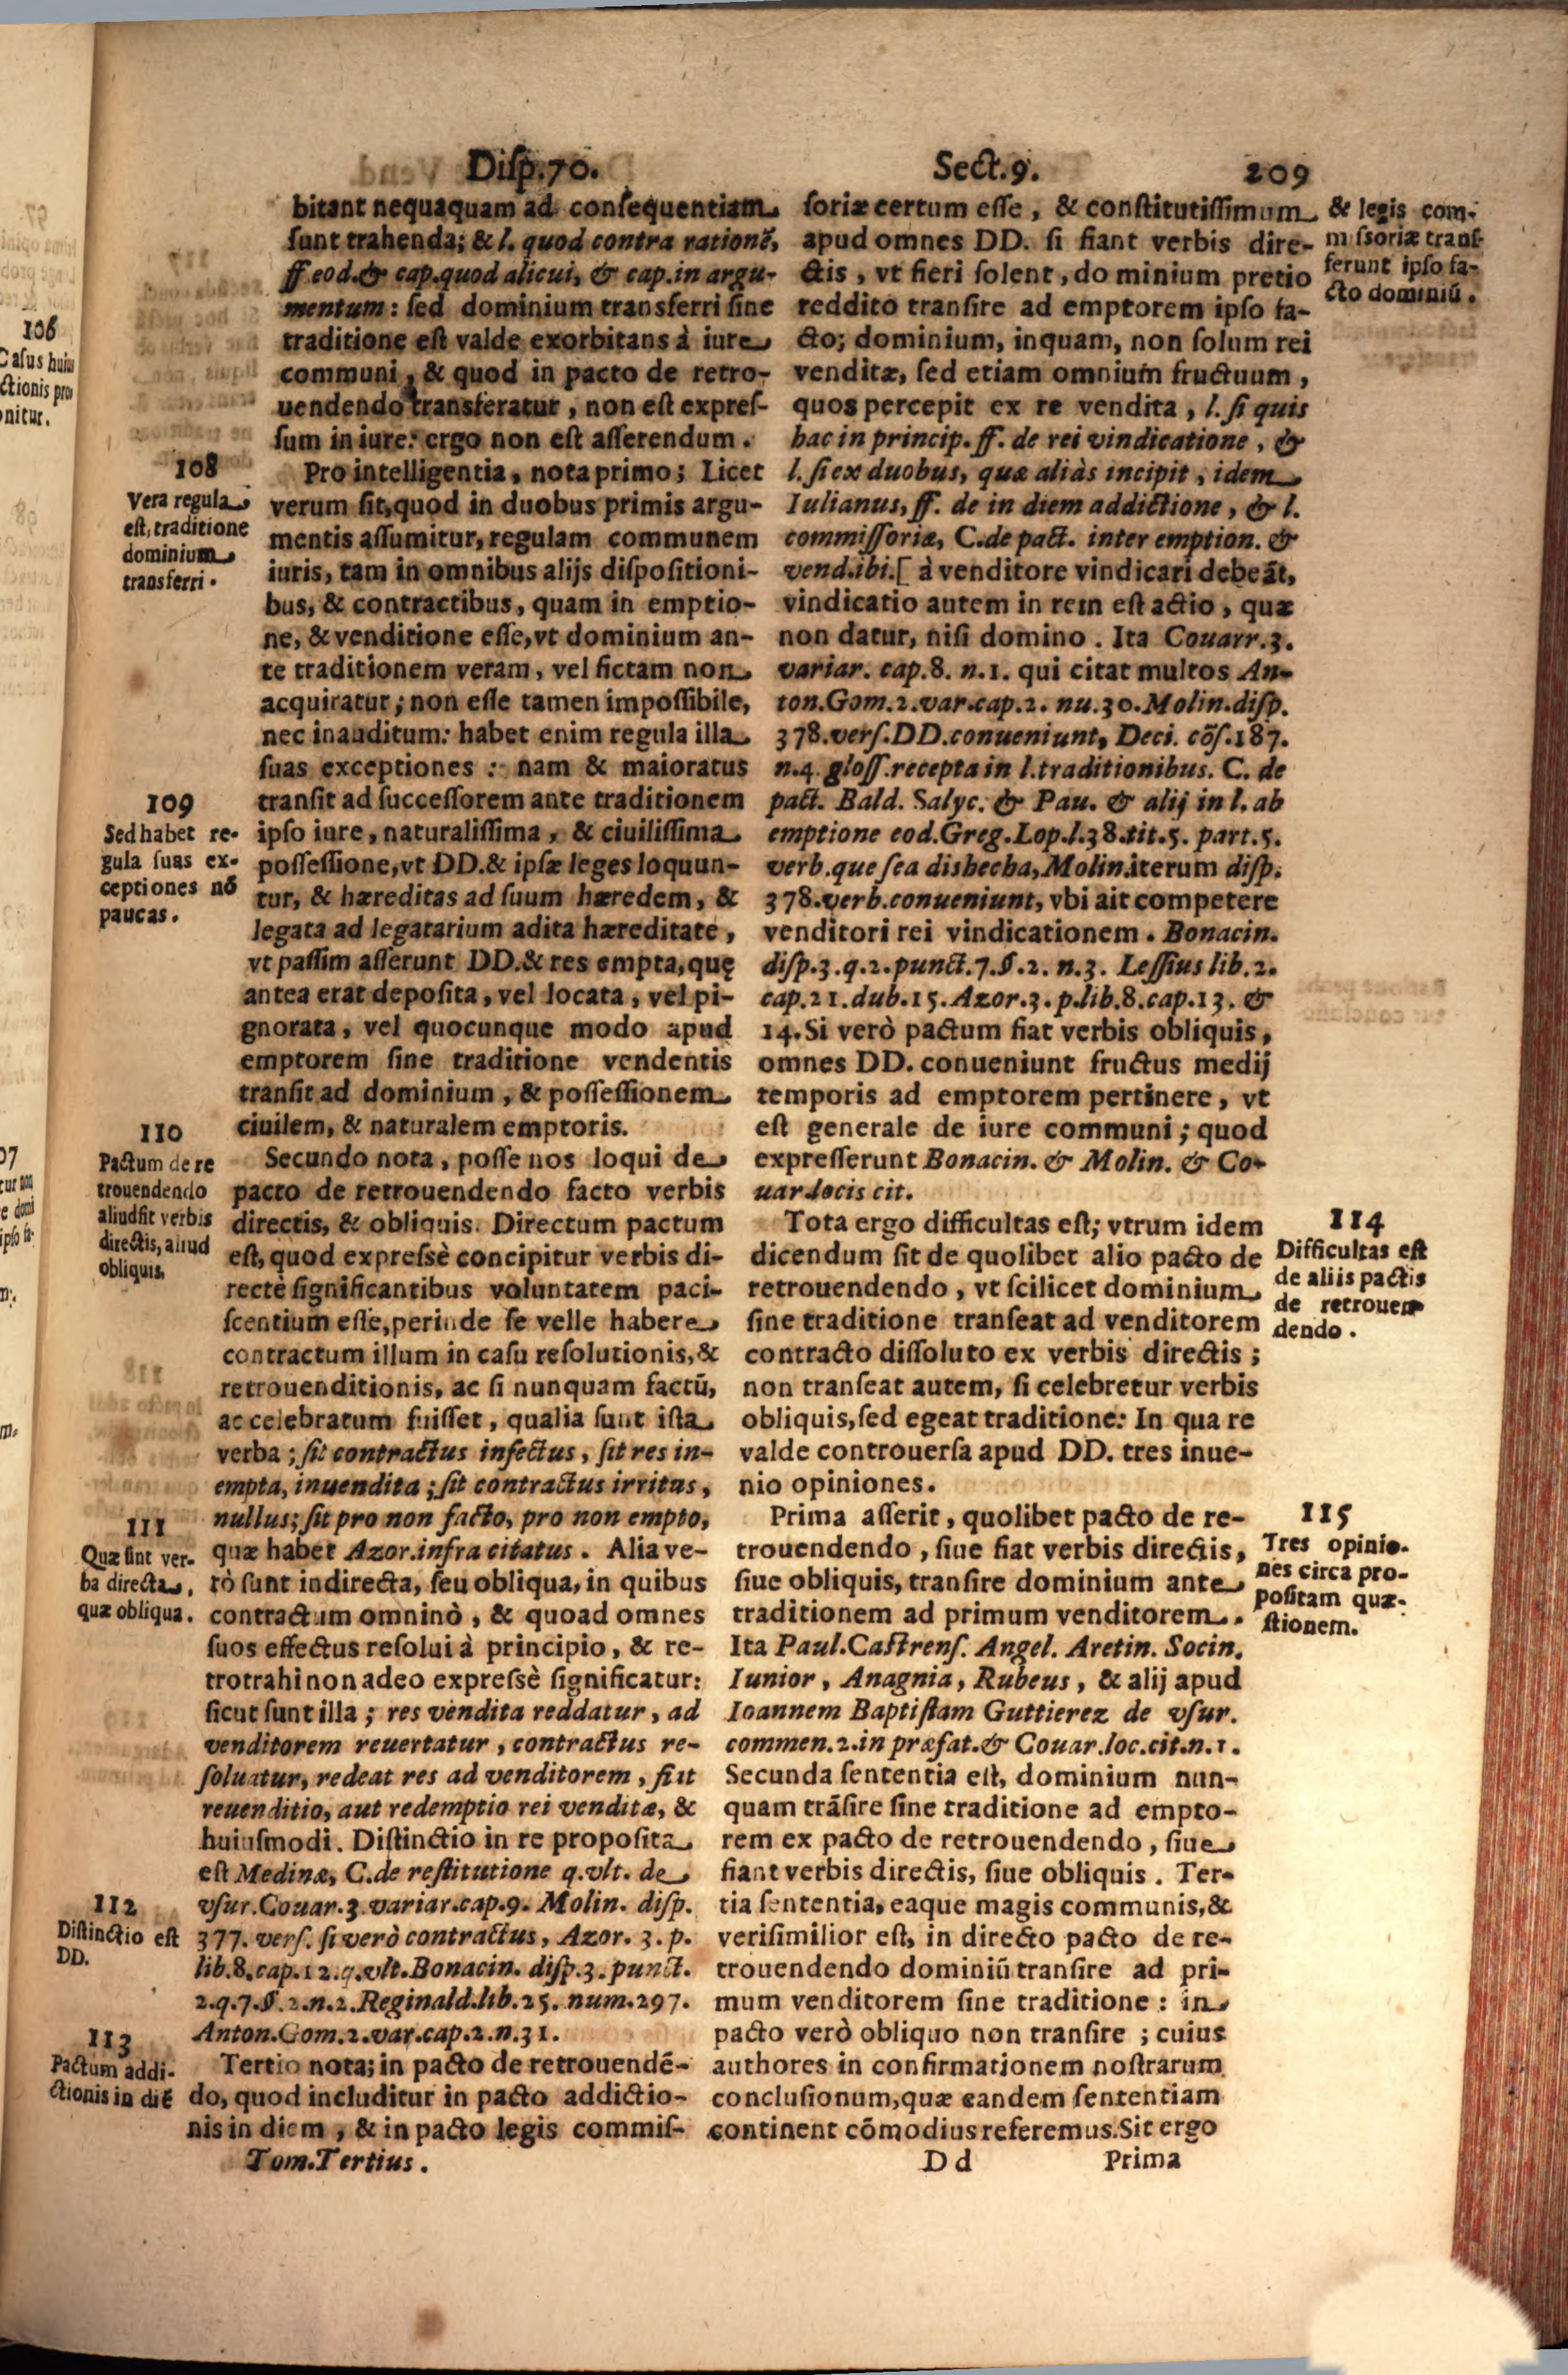 Disp.70.
Sect.9.
209
bitant nequaquam ad consequentiam
sunt trahenda; & l. quod contra rationẽ,
ff eod.& cap.quod alicui, & cap.in argu-
mentum: sed dominium transferri sine
traditione est valde exorbitans à iure
communi, & quod in pacto de retro-
uendendo transferatur, non est expres-
sum in iure: ergo non est asserendum.
108
Vera regula
est, traditione
dominium
transferri.
Pro intelligentia, nota primo; Licet
verum sit, quod in duobus primis argu-
mentis assumitur, regulam communem
iuris, tam in omnibus alijs dispositioni-
bus, & contractibus, quam in emptio-
ne, & venditione esse, vt dominium an-
te traditionem veram, vel fictam non
acquiratur; non esse tamen impossibile,
nec inauditum: habet enim regula illa
suas exceptiones: nam & maioratus
109
Sed habet re-
gula suas ex-
ceptiones nõ
paucas.
transit ad successorem ante traditionem
ipso iure, naturalissima, & ciuilissima
possessione, vt DD. & ipsæ leges loquun-
tur, & hæreditas ad suum hæredem, &
legata ad legatarium adita hæreditate,
vt passim asserunt DD. & res empta, quę
antea erat deposita, vel locata, vel pi-
gnorata, vel quocunque modo apud
emptorem sine traditione vendentis
transit ad dominium, & possessionem
ciuilem, & naturalem emptoris.
110
Pactum de re
trouendendo
aliud fit verbis
directis, aliud
obliquis.
Secundo nota, posse nos loqui de
pacto de retrouendendo facto verbis
directis, & obliquis. Directum pactum
est, quod expressè concipitur verbis di-
rectè significantibus voluntatem paci-
scentium esse, perinde se velle habere
contractum illum in casu resolutionis, &
retrouenditionis, ac si nunquam factũ,
ac celebratum fuisset, qualia sunt ista
verba; sit contractus infectus, sit res in-
empta, inuendita; sit contractus irritus,
nullus; sit pro non facto, pro non empto,
111
Quæ sint ver-
ba directa,
quæ obliqua.
quæ habet Azor.infra citatus. Alia ve-
rò sunt indirecta, seu obliqua, in quibus
contractum omninò, & quoad omnes
suos effectus resolui à principio, & re-
trotrahi non adeo expressè significatur:
sicut sunt illa; res vendita reddatur, ad
venditorem reuertatur, contractus re-
soluatur, redeat res ad venditorem, fiat
reuenditio, aut redemptio rei venditæ, &
huiusmodi. Distinctio in re proposita
est Medinæ, C.de restitutione q.vlt. de
112
Distinctio est
DD.
vsur.Couar.3.variar.cap.9. Molin. disp.
377. vers. si verò contractus, Azor. 3. p.
lib.8.cap.12.q.vlt.Bonacin. disp.3.punct.
2.q.7.§.2.n.2.Reginald.lib.25. num.297.
Anton.Gom.2.var.cap.2.n.31.
113
Pactum addi-
ctionis in diẽ
Tertio nota; in pacto de retrouendẽ-
do, quod includitur in pacto addictio-
nis in diem, & in pacto legis commis-
Tom.Tertius.
soriæ certum esse, & constitutissimum
apud omnes DD. si fiant verbis dire-
ctis, vt fieri solent, do minium pretio
reddito transire ad emptorem ipso fa-
cto; dominium, inquam, non solum rei
venditæ, sed etiam omnium fructuum,
quos percepit ex re vendita, l. si quis
hac in princip. ff. de rei vindicatione, &
l. si ex duobus, quæ aliàs incipit, idem
Iulianus, ff. de in diem addictione, & l.
commissoriæ, C.de pact. inter emption. &
vend.ibi.[ à venditore vindicari debeãt,
vindicatio autem in rem est actio, quæ
non datur, nisi domino. Ita Couarr.3.
variar. cap.8. n.1. qui citat multos An-
ton.Gom.2.var.cap.2. nu.30.Molin.disp.
378.vers.DD.conueniunt, Deci. cõs.187.
n.4. gloss.recepta in l.traditionibus. C. de
pact. Bald. Salyc. & Pau. & alij in l. ab
emptione eod.Greg.Lop.l.38.tit.5. part.5.
verb.que sea dishecha, Molin.iterum disp.
378.verb.conueniunt, vbi ait competere
venditori rei vindicationem. Bonacin.
disp.3.q.2.punct.7.§.2. n.3. Lessius lib.2.
cap.21.dub.15.Azor.3.p.lib.8.cap.13. &
14. Si verò pactum fiat verbis obliquis,
omnes DD. conueniunt fructus medij
temporis ad emptorem pertinere, vt
est generale de iure communi; quod
expresserunt Bonacin. & Molin. & Co-
uar.locis cit.
& legis com-
m ssoriæ trans-
ferunt ipso fa-
cto dominiũ.
Tota ergo difficultas est; vtrum idem
dicendum sit de quolibet alio pacto de
retrouendendo, vt scilicet dominium
sine traditione transeat ad venditorem
contracto dissoluto ex verbis directis;
non transeat autem, si celebretur verbis
obliquis, sed egeat traditione: In qua re
valde controuersa apud DD. tres inue-
nio opiniones.
114
Difficultas est
de aliis pactis
de retrouen
dendo.
Prima asserit, quolibet pacto de re-
trouendendo, siue fiat verbis directis,
siue obliquis, transire dominium ante
traditionem ad primum venditorem.
Ita Paul.Castrens. Angel. Aretin. Socin.
Iunior, Anagnia, Rubeus, & alij apud
Ioannem Baptistam Guttierez de vsur.
commen.2.in præfat.& Couar.loc.cit.n.1.
Secunda sententia est, dominium nun-
quam trãsire sine traditione ad empto-
rem ex pacto de retrouendendo, siue
fiant verbis directis, siue obliquis. Ter-
tia sententia, eaque magis communis, &
verisimilior est, in directo pacto de re-
trouendendo dominiũ transire ad pri-
mum venditorem sine traditione: in
pacto verò obliquo non transire; cuius
authores in confirmationem nostrarum
conclusionum, quæ eandem sententiam
continent cõmodius referemus. Sit ergo
115
Tres opinio-
nes circa pro-
positam quæ-
stionem.
D d
Prima
106
Casus huius